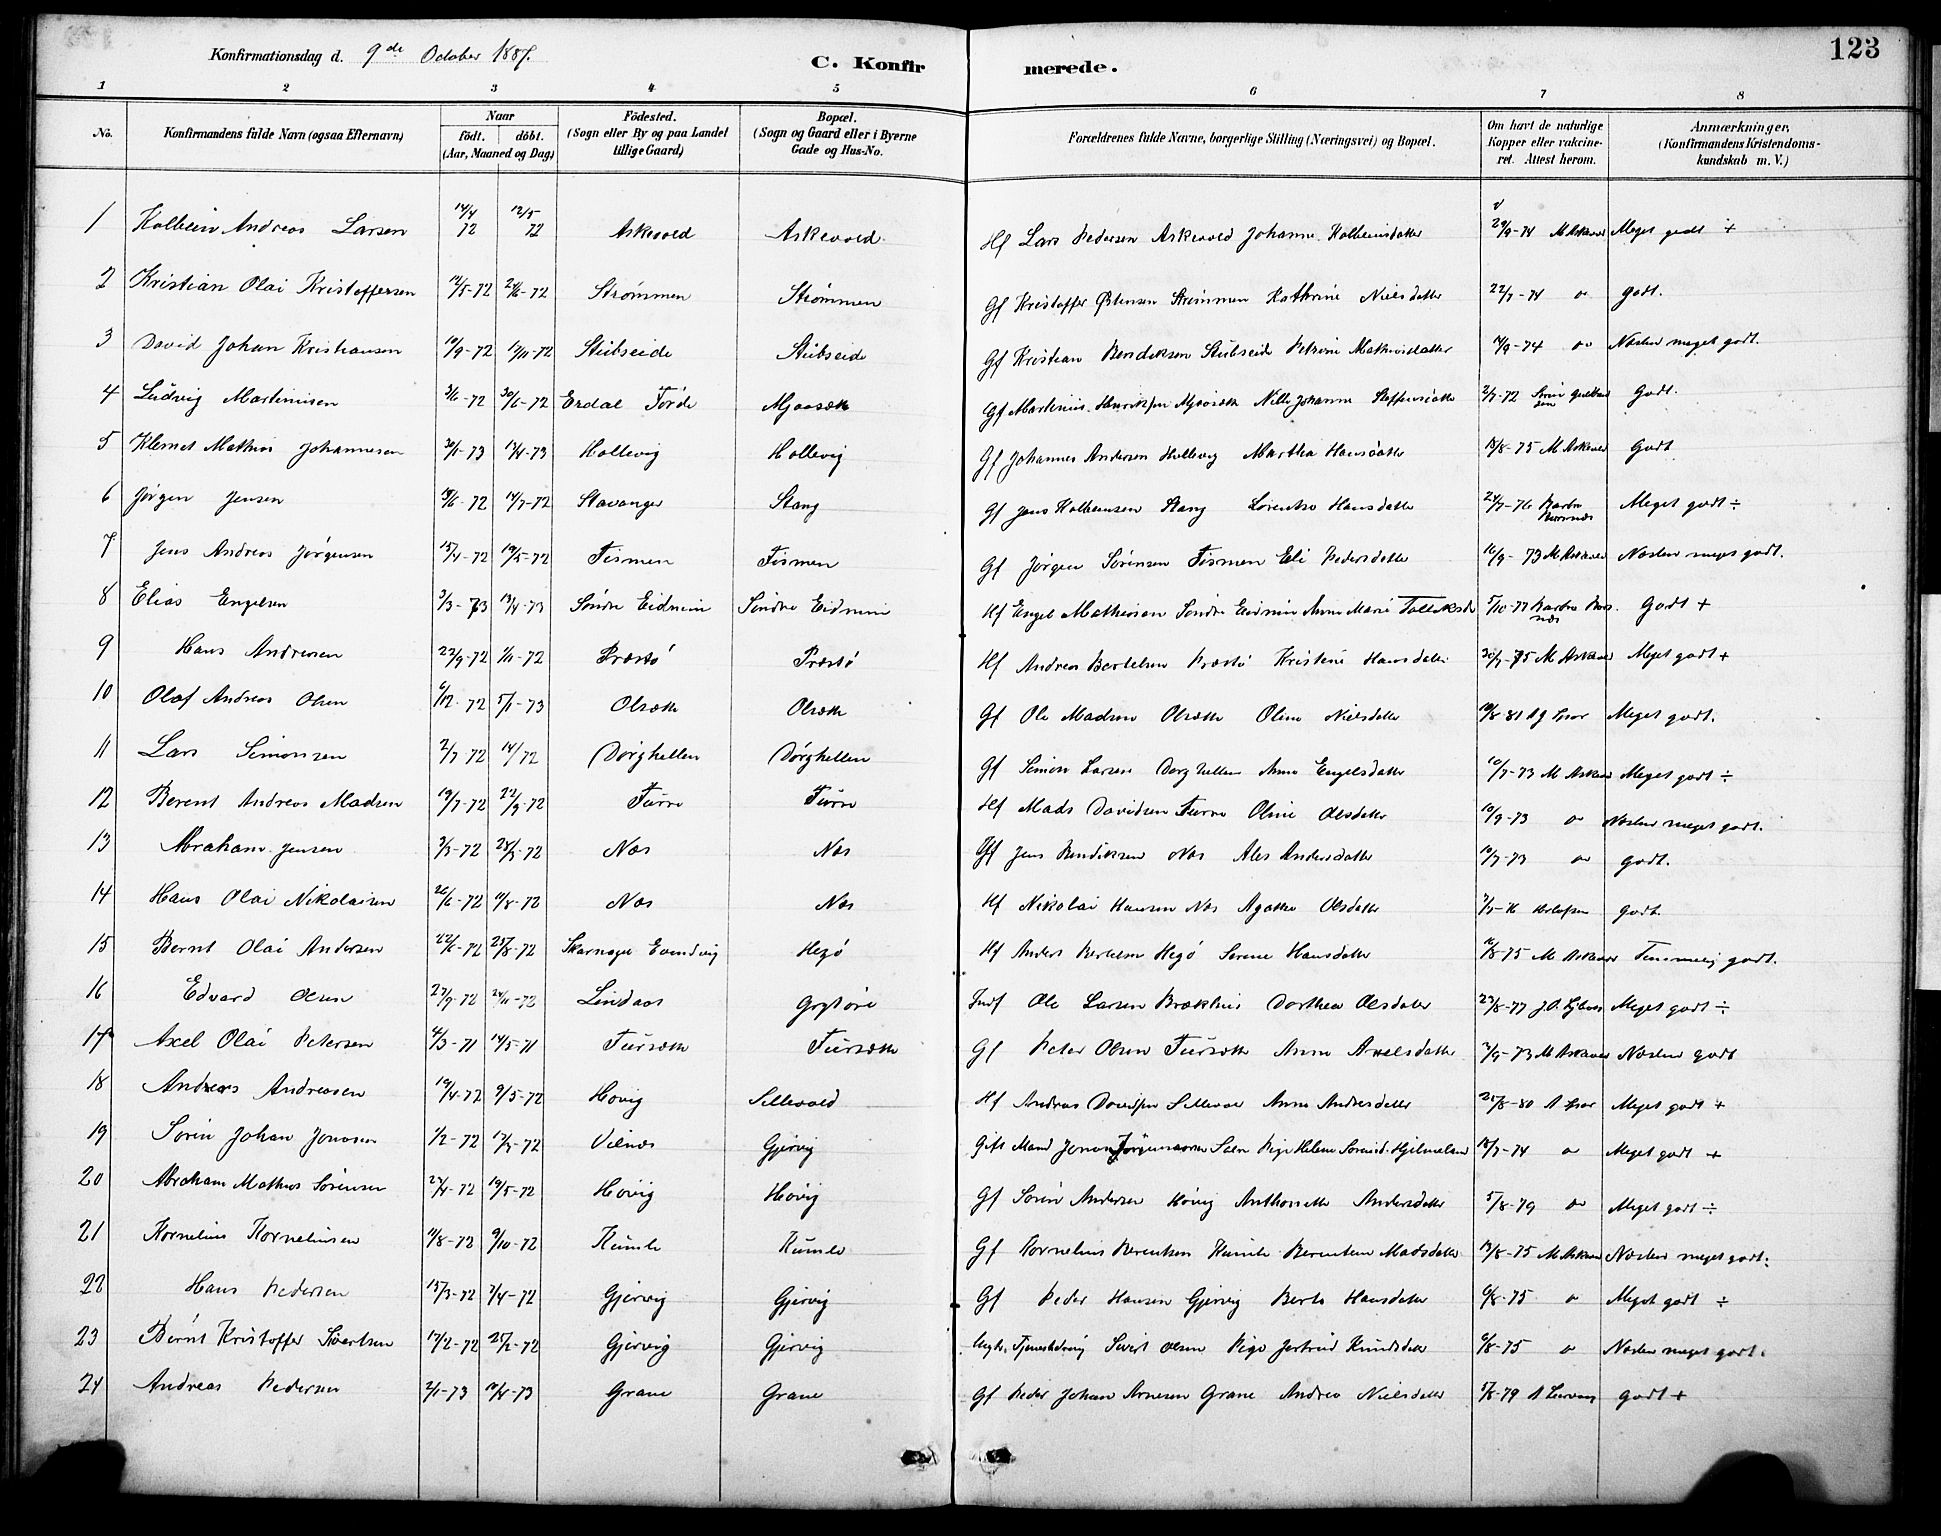 Konfirmationsdag d. 9de October 1887.
C. Konfirmerede.
123
1 2 3 4 5 6 7 8
No. Konfirmandens fulde Navn (ogsaa Efternavn) Naar födt. döbt. (Aar, Maaned og Dag) Födested. (Sogn eller By og paa Landet tillige Gaard) Bopæl. (Sogn og Gaard eller i Byerne Gade og Hus-No. Forældrenes fulde Navne, borgerlige Stilling (Næringsvei) og Bopæl. Om havt de naturlige Kopper eller vakcineret. Attest herom. Anmærkninger, (Konfirmandens Kristendomskundskab m. V.)
1 Kolbein Andreas Larsen 14/4 72 12/5 72 Askevold Askevold Hf Lars Pedersen Askevold Johanne Kolbeinsdatter 29/9-74 M Askevold Meget godt +
2 Kristian Olai Kristoffersen 12/5-72 2/6-72 Strømmen Strømmen Gf Kristoffer Østensen Strømmen Kathrine Nielsdatter 22/7-74 godt.
3 David Johan Kristiansen 10/9-72 17/11-72 Stubseide Stubseide Gf Kristian Bendiksen Stubseide Petrine Mathiasdatter 14/9-74 Næsten meget godt.
4 Ludvig Martinusen 3/6-72 30/6-72 Erdal Förde Mjaasæth Gf Martinus Henriksen Mjaasæth Nille Johanne Steffensdatter 2/7-72 Godt.
5 Klemet Mathias Johannesen 30/1-73 13/4-73 Hollevig Hollevig Gf Johannes Andersen Hollevig Martha Hansdatter 13/8-75 M Askevold Godt
6 Jørgen Jensen 18/6-72 14/7-72 Stavanger Stang Gf Jens Kolbeinsen Stang Lorentse Hansdatter 24/7-76 Barbro Meget godt ÷
7 Jens Andreas Jørgensen 15/4-72 19/5-72 Tismen Tismen Gf Jørgen Sørensen Tismen Eli Pedersdatter 16/9-73 M Askevold Næsten meget godt.
8 Elias Engelsen 3/3-73 13/4-73 Søndre Eidneim Søndre Eidneim Hf Engel Mathiasen Søndre Eidneim Anne Marie 5/10-77 Barbro Godt +
9 Hans Andreasen 22/9-72 1/11-72 Præstø Præstø Hf Andreas Bertelsen Præstø Kristine Hansdatter 30/7-75 M Askevold Meget godt +
10 Olaf Andreas Olsen 6/12-72 5/1-73 Olsæth Olsæth Gf Ole Madsen Olsæth Oline Nielsdatter 10/8-81 Meget godt.
11 Lars Simonsen 2/7-72 14/ 72 Dørghellen Dørghellen Gf Simon Larsen Dørghellen Anne Engelsdatter 10/7-73 M Askevold Meget godt ÷
12 Berent Andreas Madsen 19/7-72 22/9-72 Furre Furre Hf Mads Davidsen Furre Oline Olsdatter 10/9-73 Næsten meget godt.
13 Abraham Jensen 3/3-72 28/3-72 Næs Næs Gf Jens Bendiksen Næs Ales Andersdatter 10/7-73 godt.
14 Hans Olai Nikolaisen 26/6-72 11/8-72 Næs Næs Hf Nikolai Hansen Næs Agathe Olsdatter godt.
15 Bernt Olai Andersen 22/6-72 25/8-72 Evendvig Hegø Hf Anders Bertelsen Hegø Serine Hansdatter 16/8-75 M Askevold Temmelig godt.
16 Edvard Olsen 27/9-72 24/11-72 Lindaas Grytøre Indf Ole Larsen Brækhus Dorthea Olsdatter 23/8-77 Meget godt ÷
17 Axel Olai Petersen 4/3-71 14/5-71 Fursæth Fursæth Gf Peter Olsen Fursæth Anne Axelsdatter 3/9-73 M Askevold Næsten godt
18 Andreas Andreasen 19/4-72 9/5-72 Høvig Sellevold Hf Andreas Davidsen Sellevold Anne Andersdatter 25/8-80 Meget godt +
19 Sørin Johan Jonasen 1/2-72 17/3-72 Vilnes Gjervig Gift Mand Jonas Jørgensen Pige Helene Hjelmeland 18/7-74 Meget godt +
20 Abraham Mathias Sørensen 27/4-72 19/5-72 Høvig Høvig Gf Sørin Andersen Høvig Anthonette Andersdatter 5/8-79 Meget godt ÷
21 Kornelius Korneliusen 11/8-72 9/10-72 Humle Humle Gf Kornelius Berentsen Humle Berentine Madsdatter 13/8-75 M Askevold Næsten meget godt.
22 Hans Pedersen 15/3-72 7/4-72 Gjervig Gjervig Gf Peder Hansen Gjervig Berte Hansdatter 6/8-75 Meget godt ÷
23 Bernt Kristoffer Sivertsen 17/2-72 25/2-72 Gjervig Gjervig Ungk. Tjenestedreng Sivert Olsen Pige Jertrud Knudsdatter 6/8-75 Næsten meget godt.
24 Andreas Pedersen 2/1-73 10/4-73 Grane Grane Gf Peder Johan Arnesen Grane Andrea Nielsdatter 5/8-79 godt +